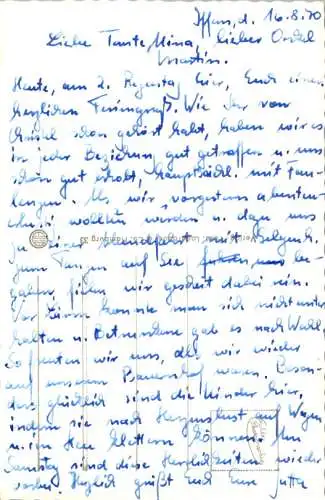 Husum, d. 16.8.70
Liebe Tante Mina, lieber Onkel
Martin.
Heute, am 2. Regentag hier, Euch einen
herzlichen Feriengruß. Wie Ihr von
schon gehört habt, haben wir es
in jeder Beziehung gut getroffen u. uns
schon gut erholt, hauptsächl. mit Fau-
lenzen. Als wir vorgestern abenteu-
wollten werden u. dazu uns
zu einer mit
zum Tanzen auf See be-
gaben, fielen wir gescheit dabei rein.
Vor Lärm konnte man sich nicht unter-
halten u. Betrunkene gab es nach Wahl.
So freuten wir uns, als wir wieder
auf unserem Bauernhof waren. Beson-
ders glücklich sind die Kinder hier,
indem sie nach Herzenslust auf Wagen
u. im Heu klettern können. Am
Samstag sind diese Herrlichkeiten wieder
vorbei. Herzlich grüßt Euch Eure Jutta